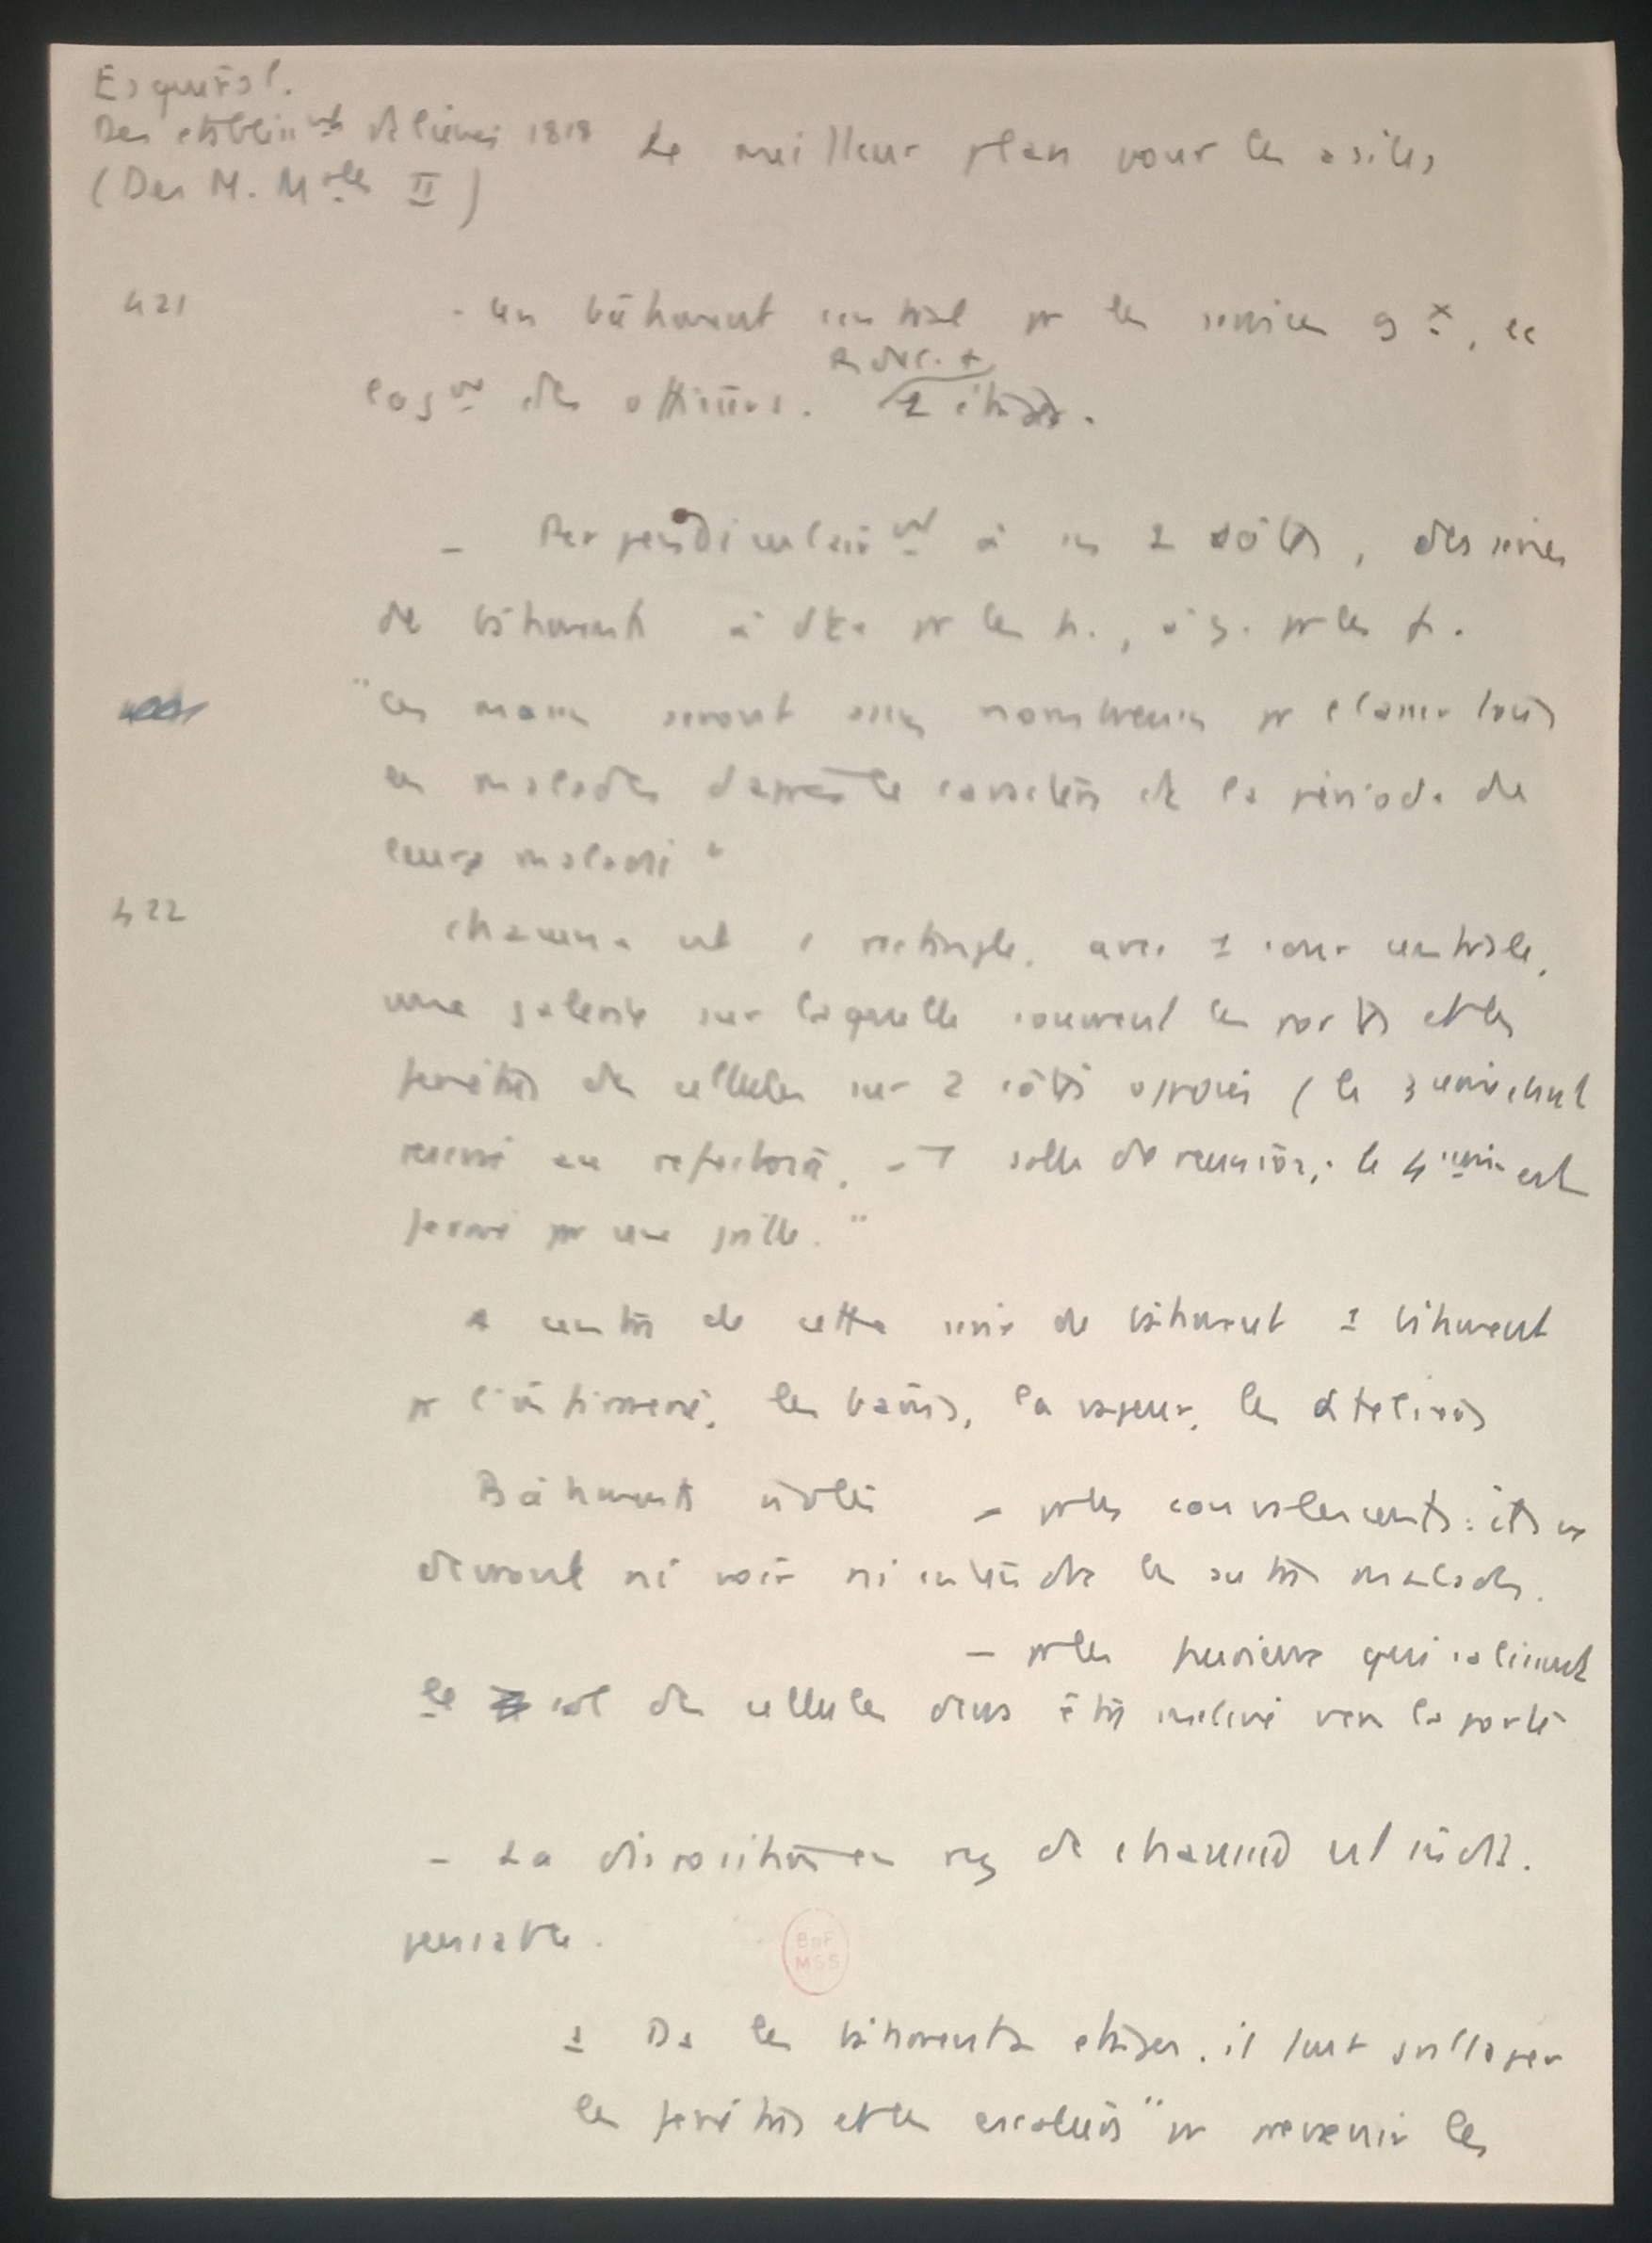 Esquirol.
Des établissmts d'aliénés 1818
(Des M. Mles II)
Le meilleur plan pour les asiles
421
- Un bâtiment central pr les services gx, le
logmt des officiers.
2 étages.
- Perpendiculairmt à ces 2 côtés, des séries
de bâtiments à dte pr les h., à g. pr les f.
"Ces masses seront assez nombreuses pr classer tous
les malades d'après le caractère et la période de
leurs maladie"
422
Chacune est 1 rectangle, avec 1 cour centrale,
une galerie sur laquelle s'ouvrent les portes et les
fenêtres des cellules sur 2 côtés opposés (le 3 est
réservé au réfectoire, à salle de réunion; le 4 est
fermé par une grille."
Au centre de cette série de bâtiment 1 bâtiment
pr l'infirmerie, les bains, la vapeur, les ateliers
Bâtiments isolés - pr les convalescents: ils ne
devront ni voir ni entendre les autres malades.
- pr les furieux qui salissent
le sol des cellules devra être incliné vers la porte
- La disposition en rez de chaussée est indis-
pensable.
1 Ds les bâtiments étages, il faut grillager
les fenêtres et les escaliers "pr prévenir les
BnF
MSS